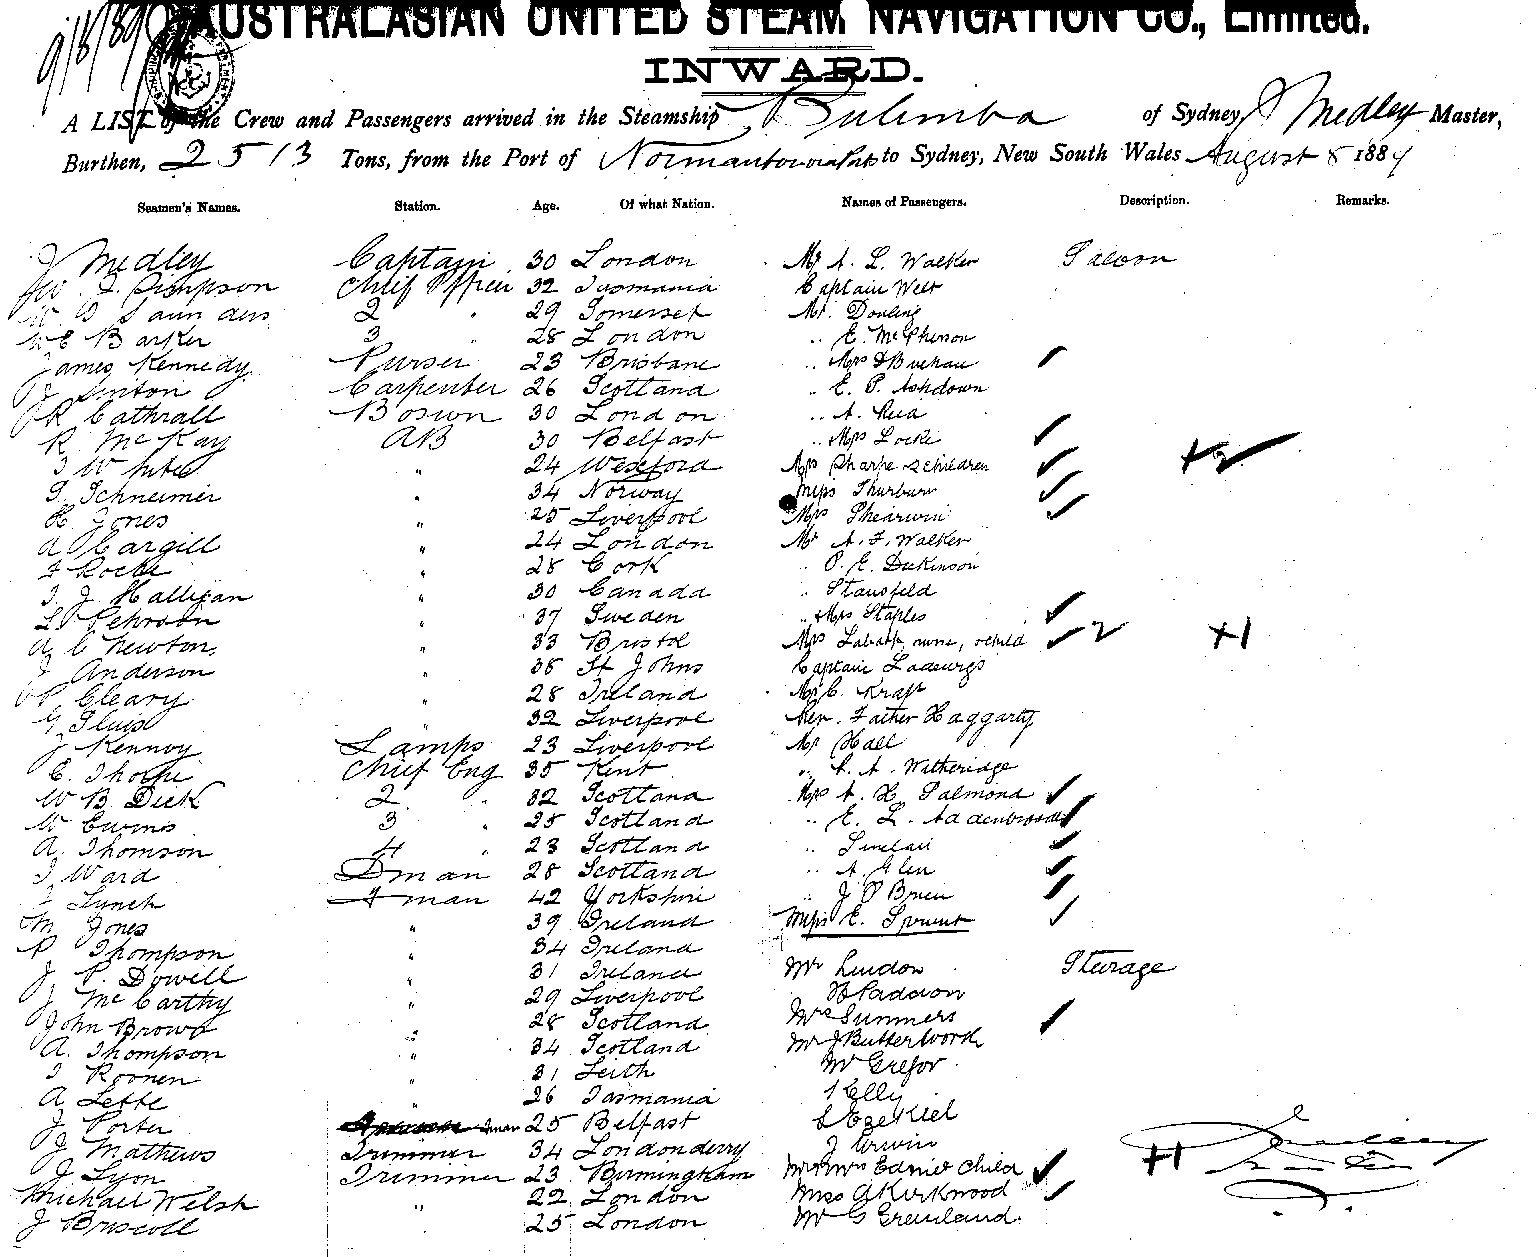 9/8/89
AUSTRALASIAN UNITED STEAM NAVIGATION CO., Limited.
INWARD.
A LIST of the Crew and Passengers arrived in the Steamship Bulimba of Sydney, J Medley Master,
Burthen, 2513 Tons, from the Port of Normanton to Sydney, New South Wales August 8 1889
Seamen's Names. Station. Age. Of what Nation. Names of Passengers. Description. Remarks.
J Medley Captain 30 London Mr A. L. Walker Saloon
Simpson Chief Officer 32 Tasmania Captain West
W Saunders 2 " 29 Somerset Mr. Dowling
W E Barker 3 " 28 London " E. McPherson
James Kennedy Purser 23 Brisbane " Mrs Buchan
J Linton Carpenter 26 Scotland " E. P. Ashdown
R Cathrall Bosun 30 London " A. Reid
R McKay AB 30 Belfast " Mrs Locke
White " 24 Wexford Mrs Sharpe 2 children +2
Schneimer " 34 Norway Miss Thurburn
H. Jones " 25 Liverpool Mrs Shearwin
A Cargill " 24 London Mr A. F. Walker
Roche " 28 Cork " P. E. Dickinson
J. Halligan " 30 Canada " Stansfeld
Pehrson " 37 Sweden " Mrs Staples
A C Newton " 33 Bristol Mrs nurse, child 2 +1
J Anderson " 38 St Johns Captain
P Cleary " 28 Ireland Mr C. Kraft
G " 32 Liverpool Rev. Father Haggarty
J Kennoy Lamps 23 Liverpool Mr Hall
E. Thorpe Chief Eng 35 Kent " A. Witheridge
W B. Dick 2 " 32 Scotland Mrs A. H. Salmond
W 3 " 25 Scotland " E. L. Addenbrooke
A. Thomson 4 " 23 Scotland " Sinclair
Ward Dman 28 Scotland " A. Glen
Lynch Fman 42 Yorkshire " J O'Brien
M Jones " 39 Ireland Miss E. Sprent
P Thompson " 34 Ireland
J. P. Dowell " 31 Ireland Mr Lindon Steerage
J McCarthy " 29 Liverpool
John Brown " 28 Scotland Mrs Summers
A. Thompson " 34 Scotland Mr J Butterworth
Roonen " 31 Leith Mr Gregor
A Lette " 26 Tasmania Elly
J Porter 25 Belfast Ezekiel
J Mathews Trimmer 34 Londonderry J Erwin
J Lyon Trimmer 23 Birmingham Mr & Mrs child +1
Michael Welsh " 22 London Miss Kirkwood
J Briscoll 25 London Mr G Greenland